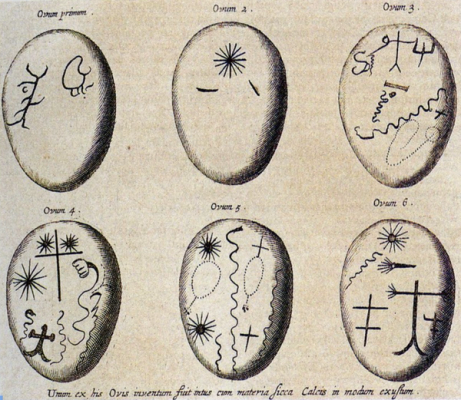 Ovum primum.
Ovum 2.
Ovum 3.
Ovum 4.
Ovum 5
Ovum 6.
Unum ex his Ovis inventum fuit intus cum materia sicca Calcis in modum exustum.